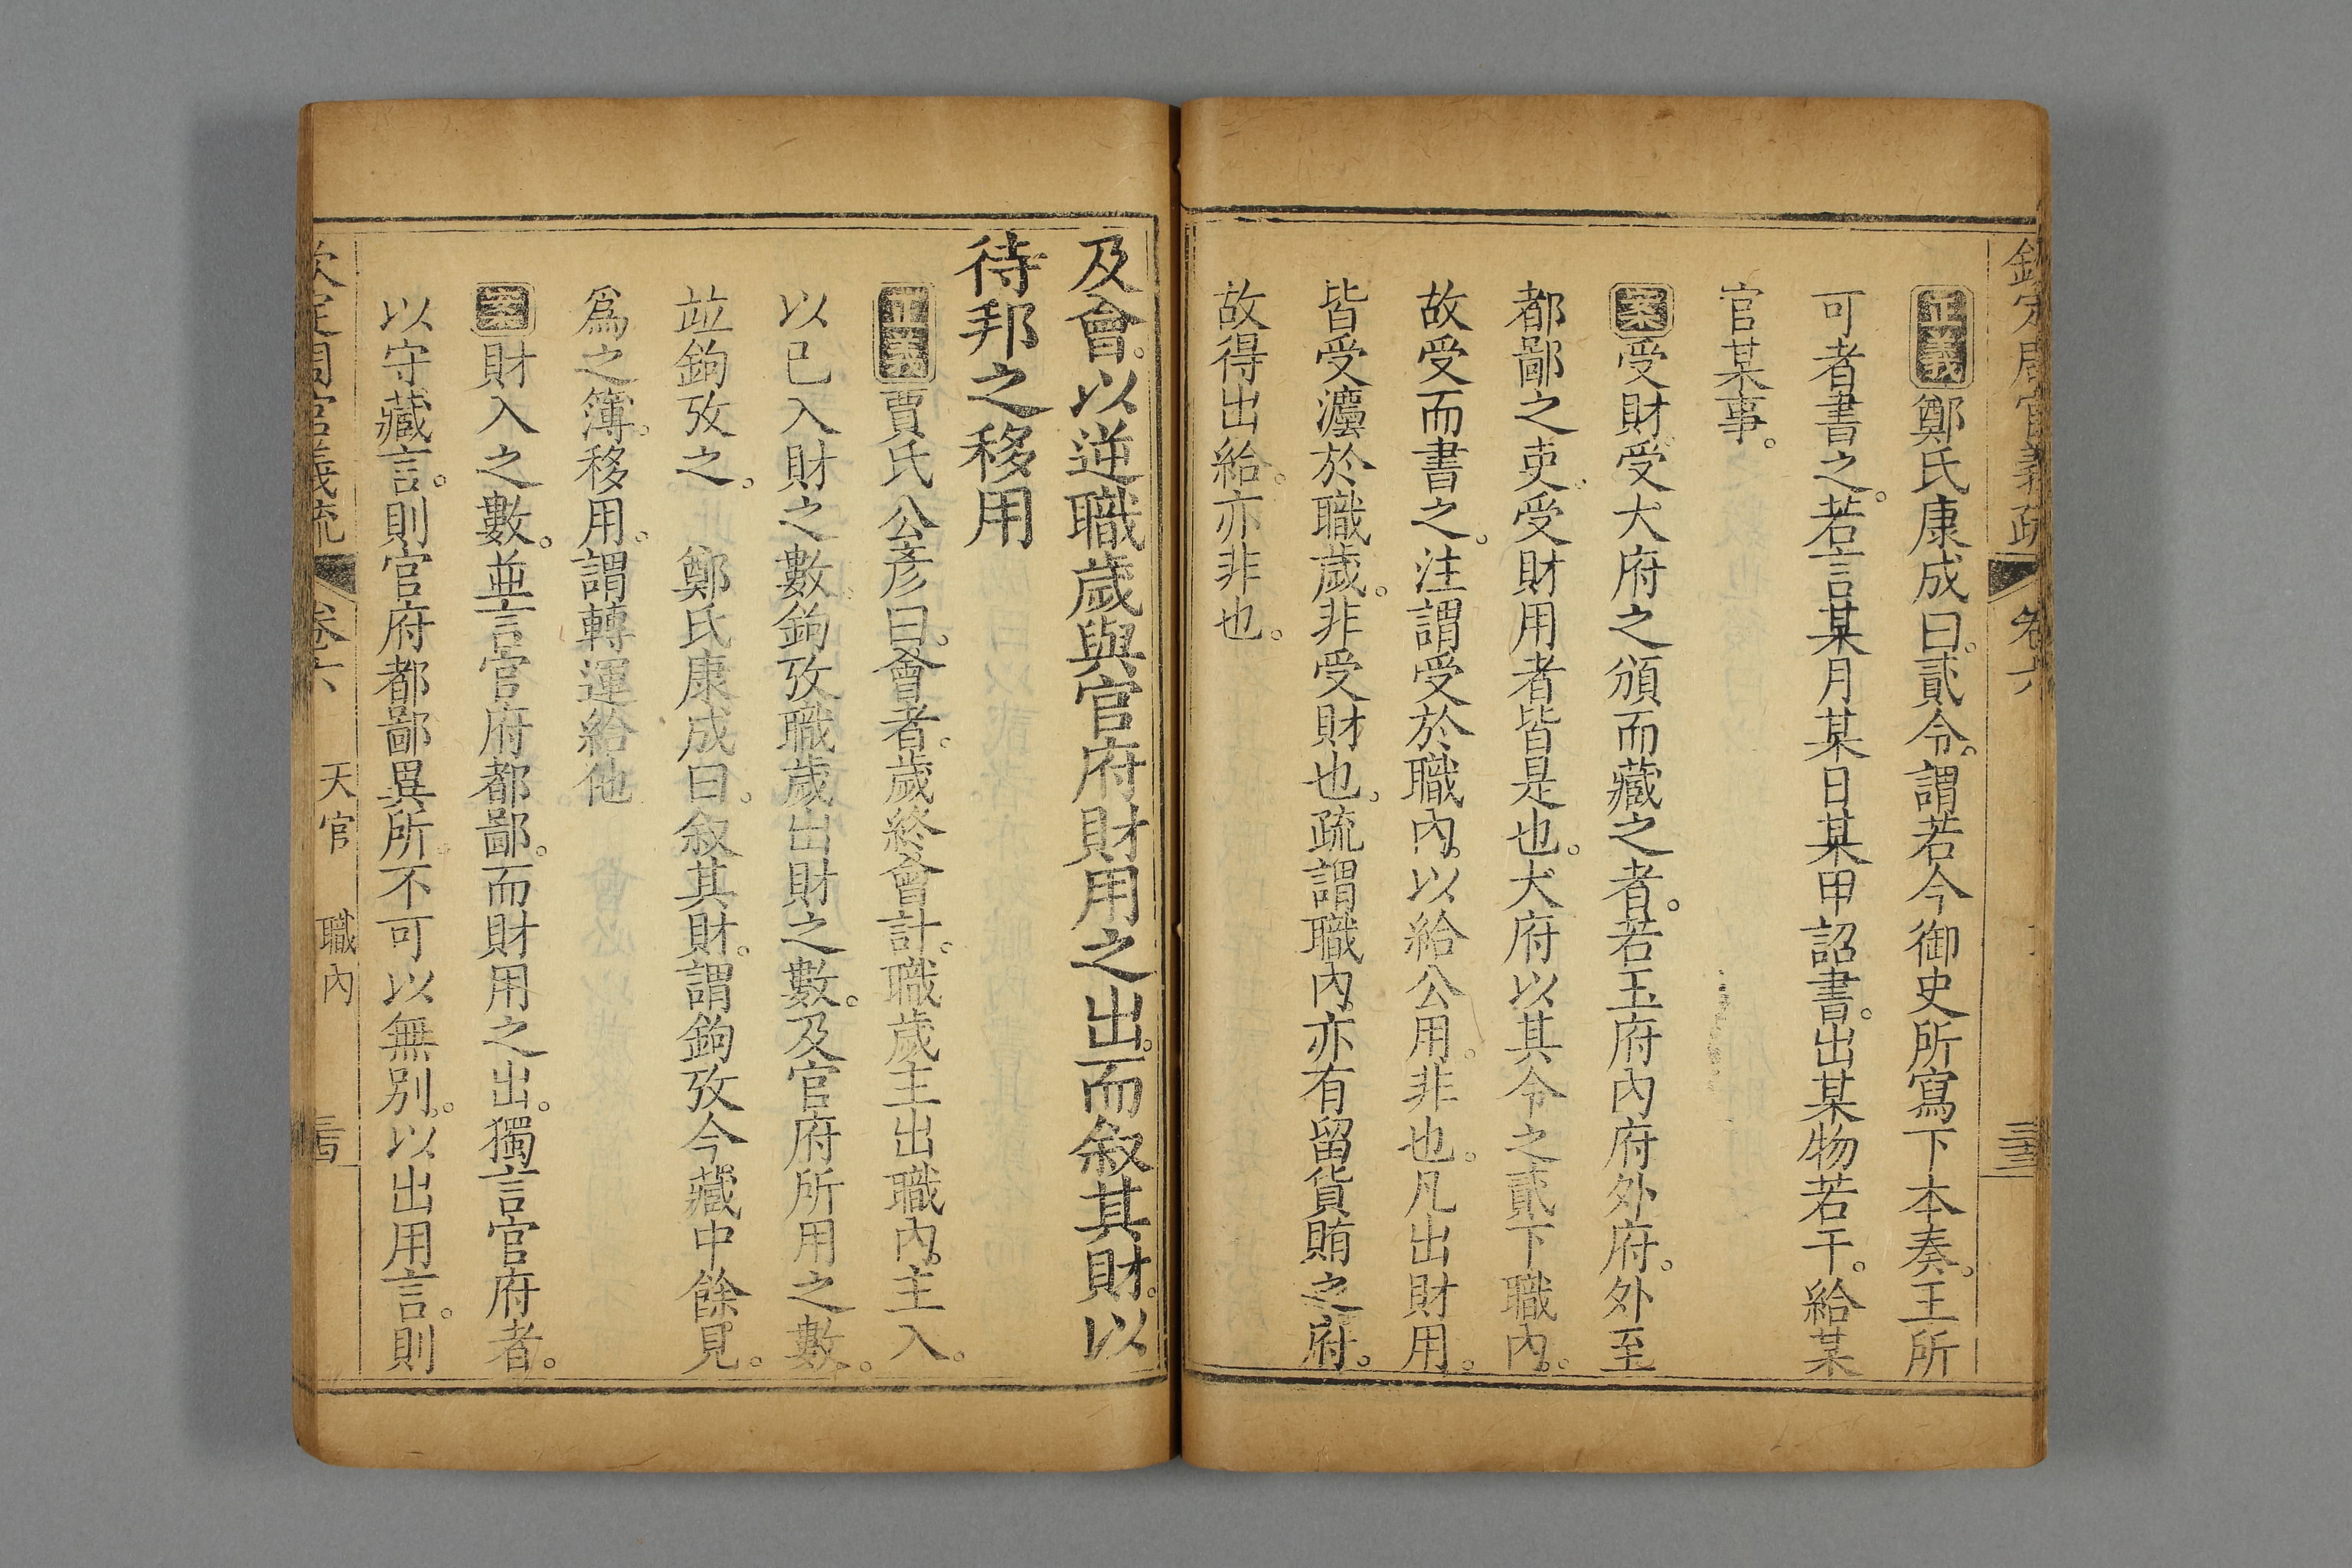 欽定周官義疏 卷六
正義鄭氏康成曰。貳令。謂若今御史所寫下本奏。王所
可者書之。若言某月某日某甲詔書。出某物若干。給某
官某事。
案受財。受大府之頒而藏之者。若玉府內府外府。外至
都鄙之吏。受財用者皆是也。大府以其令之貳下職內。
故受而書之。注謂受於職內。以給公用。非也。凡出財用。
皆受灋於職歲。非受財也。疏謂職內。亦有留貨賄之府。
故得出給。亦非也。
及會。以逆職歲與官府財用之出。而敘其財。以
待邦之移用
正義賈氏公彥曰。會者。歲終會計。職歲主出職內。主入。
以已入財之數。鉤攷職歲出財之數。及官府所用之數。
並鉤攷之。 鄭氏康成曰。敘其財。謂鉤攷今藏中餘見。
爲之簿。移用。謂轉運給他
案財入之數。並言官府都鄙。而財用之出。獨言官府者。
以守藏言。則官府都鄙異所。不可以無別。以出用言。則
欽定周官義疏 卷六 天官 職內